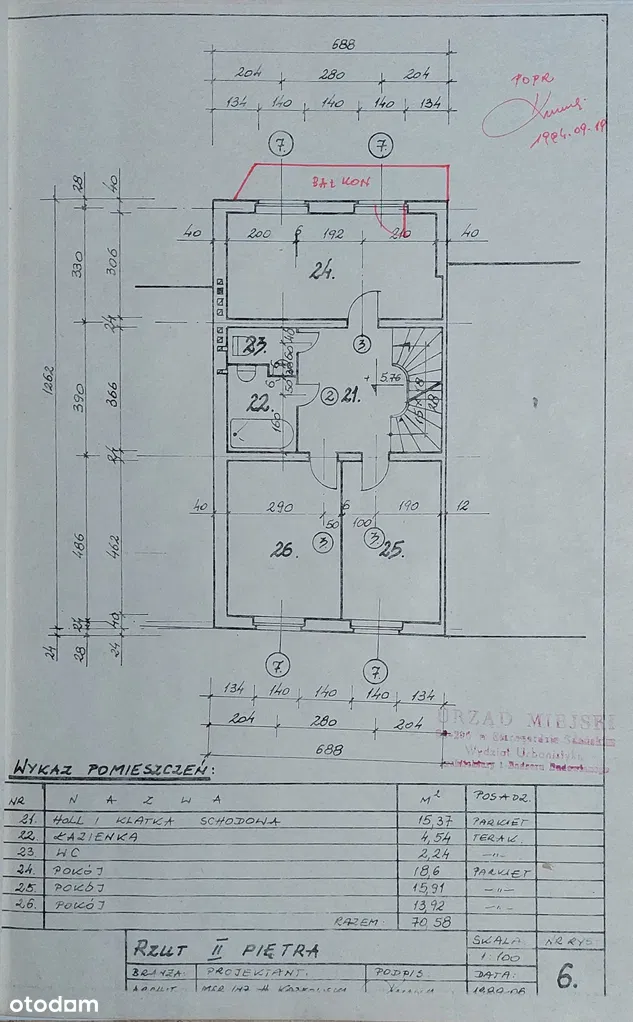 688
204 280 204
134 140 140 140 134
POPR
1984.09.19
7. 7.
BALKON
28 40
40 200 6 192 210 40
24.
330 306
24
23.
3
+ 5.76
22. 2 21.
16 x 18
28
160
1262 390 366
24
40 290 6 190 12
50 100
3 3
26. 25.
486 462
24 40
24 28 24
7 7
134 140 140 140 134
204 280 204
688
URZĄD MIEJSKI
WYKAZ POMIESZCZEŃ:
NR NAZWA M² POSADZ.
21. HOLL I KLATKA SCHODOWA 15,37 PARKIET
22. ŁAZIENKA 4,54 TERAK.
23. WC 2,24 —"—
24. POKÓJ 18,6 PARKIET
25. POKÓJ 15,91 —"—
26. POKÓJ 13,92 —"—
RAZEM: 70,58
RZUT II PIĘTRA SKALA 1:100 NR RYS 6.
BRANŻA: PROJEKTANT: PODPIS DATA:
otodom